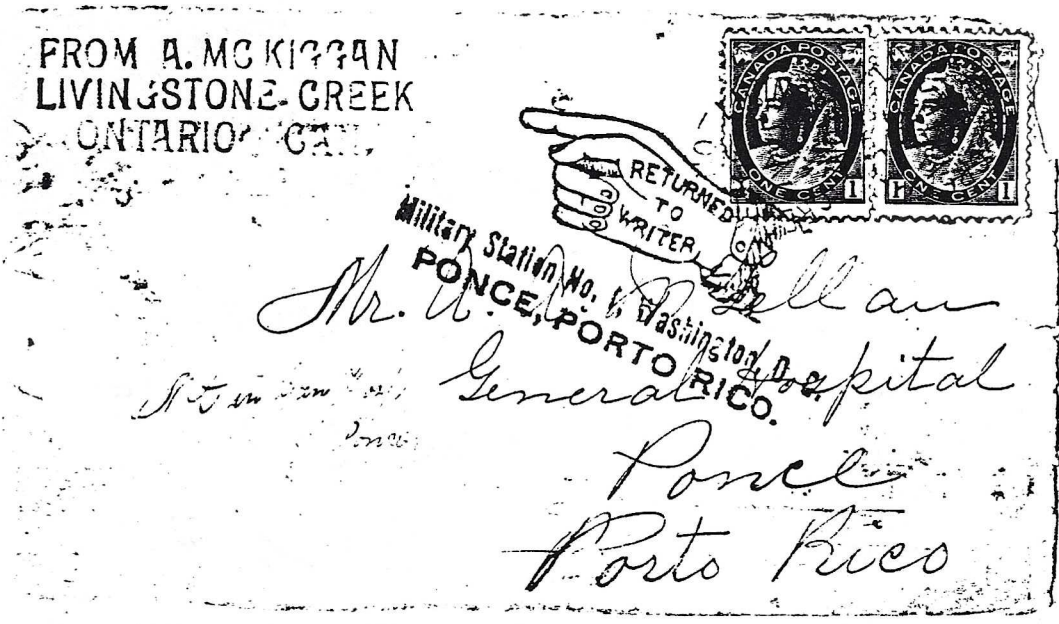 FROM A. MCKIGGAN
LIVINGSTONE CREEK
ONTARIO CAN.
CANADA POSTAGE
ONE CENT
1
CANADA POSTAGE
ONE CENT
1 1
RETURNED
TO
WRITER
Military Station No. 1, Washington, D. C.
PONCE, PORTO RICO.
Mr.
General Hospital
Ponce
Porto Rico
Not in
Ponce